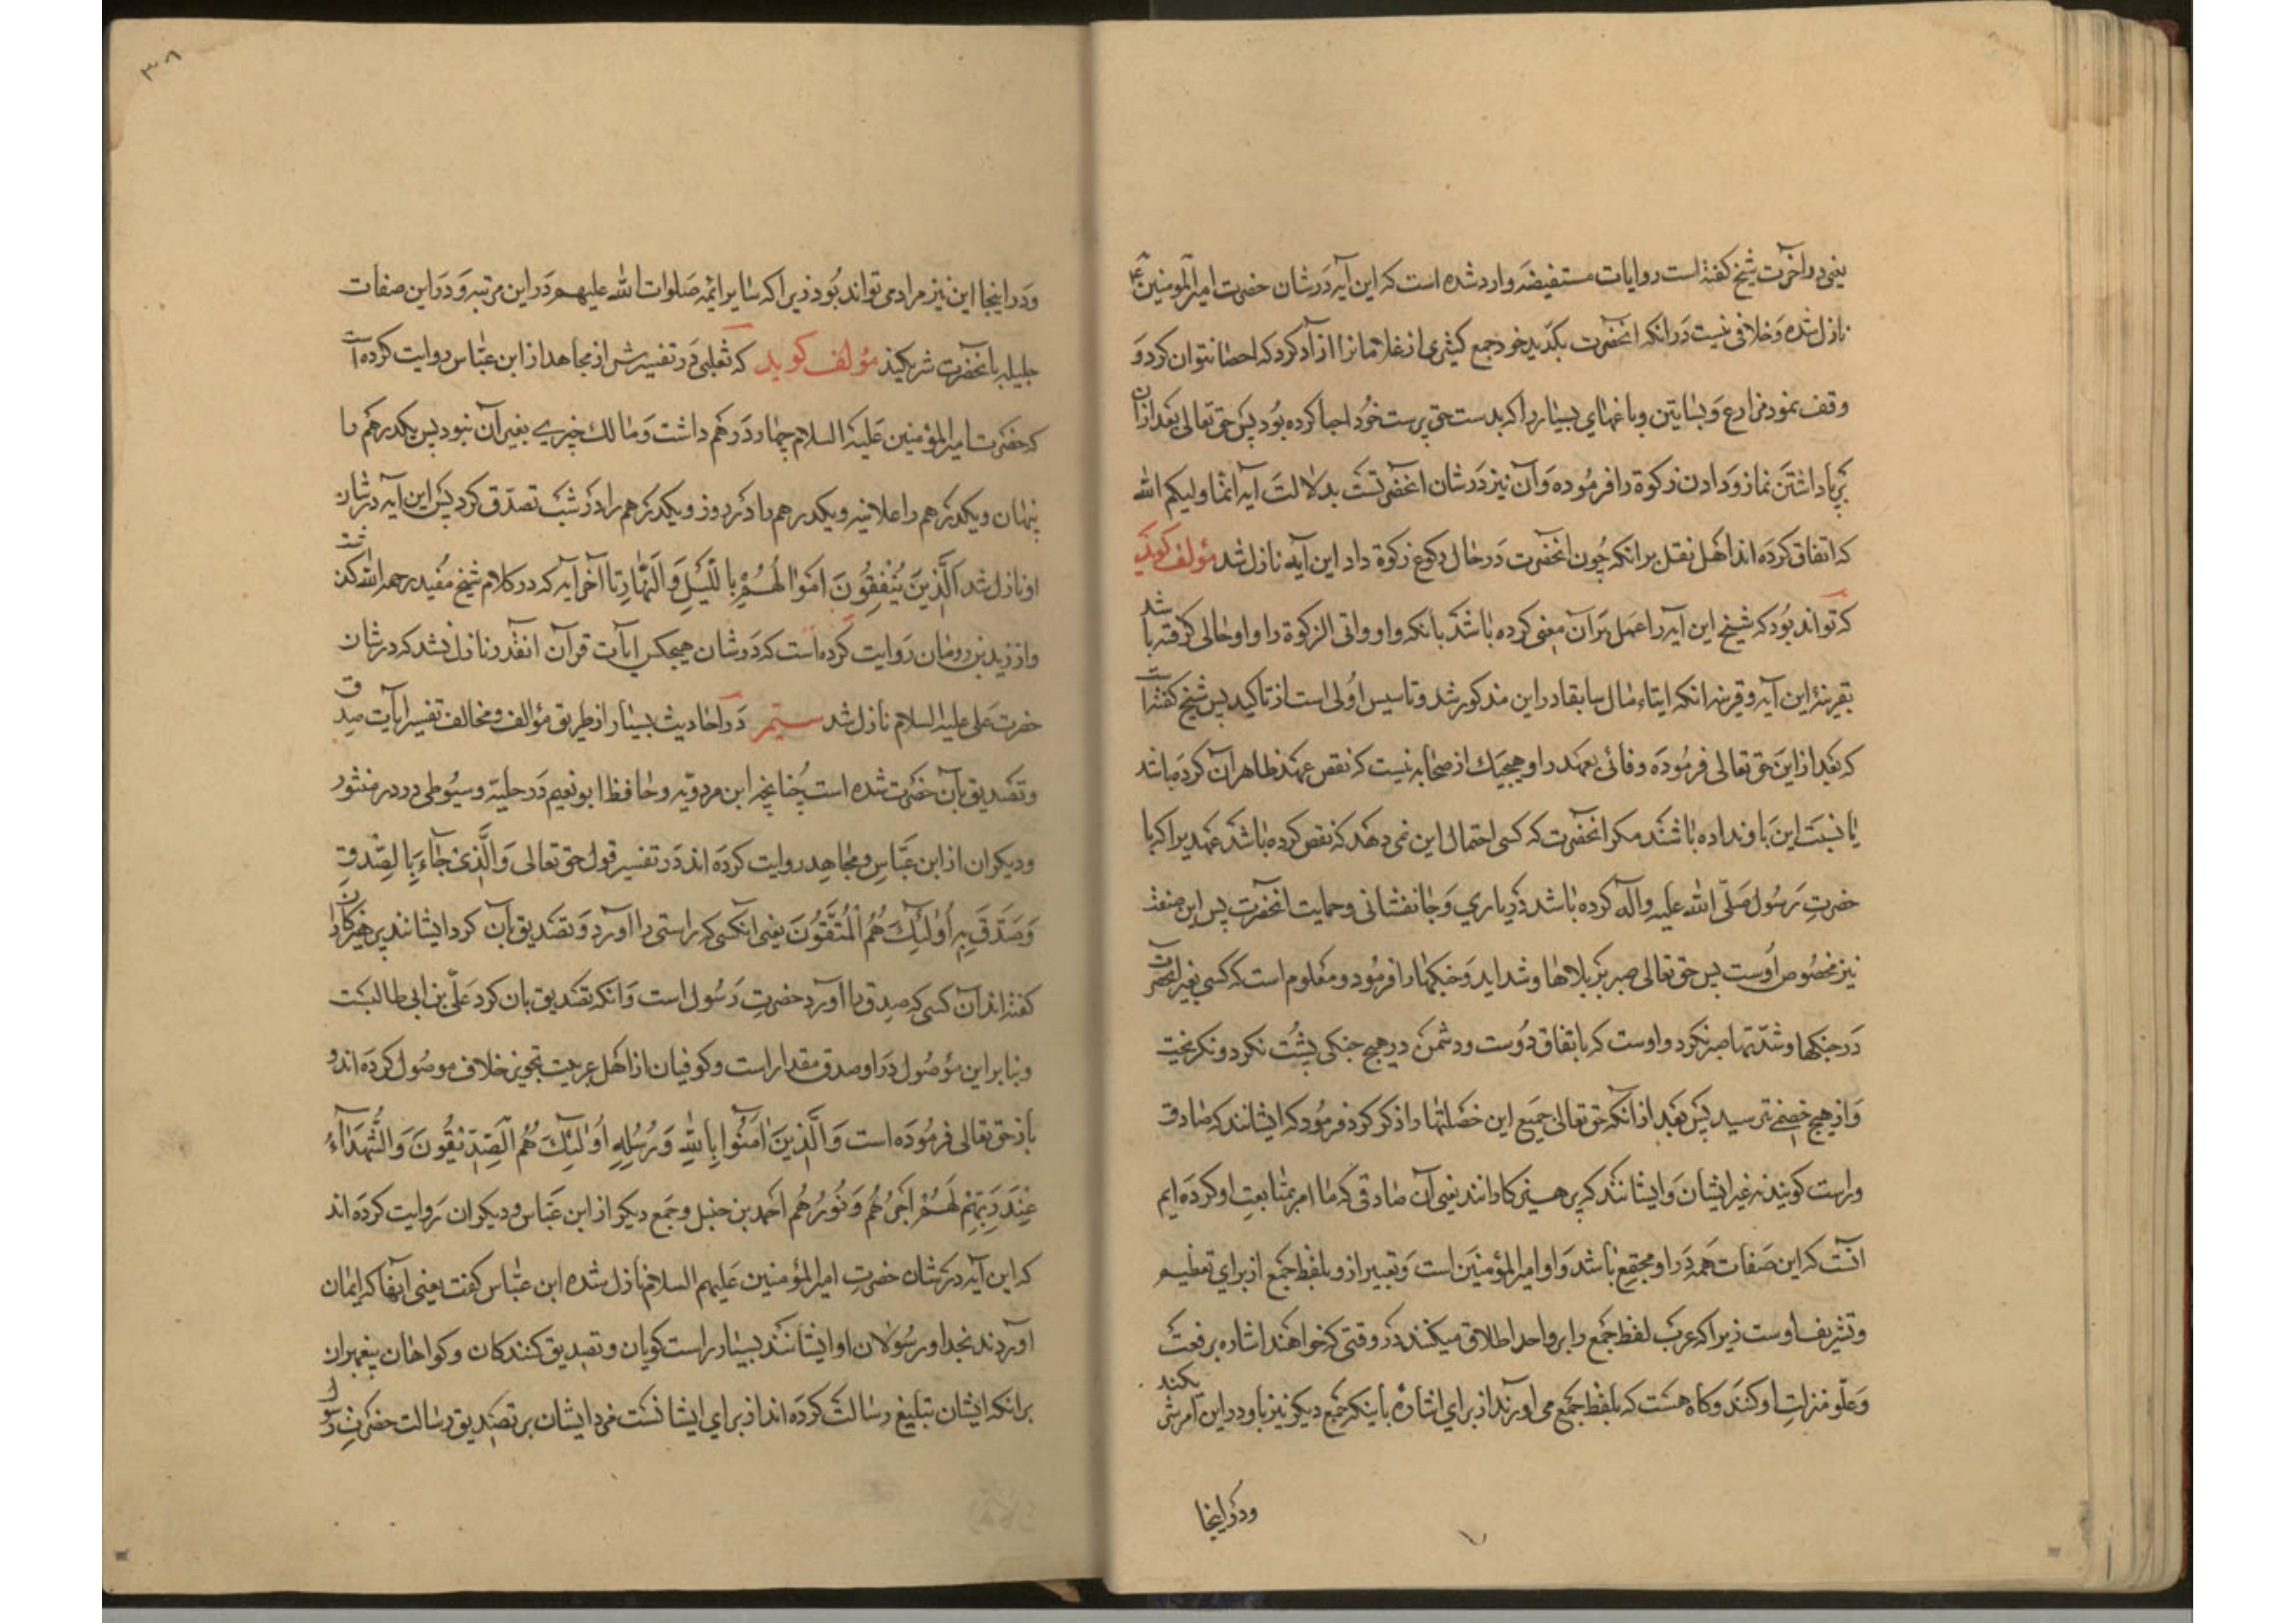 یعنی در آخرت شیخ کفته است روایات مستفیضه وارد شده است که این آیه در شان حضرت امیرالمومنین ع
نازل شده و خلافی نیست در آنکه آنحضرت بکدّ ید خود جمع کثیری از غلامانرا آزاد کرد که احصا نتوان کرد و
وقف نمود مزارع و بساتین و باغهای بسیار را که بدست حق پرست خود احیا کرده بود پس حق تعالی بعد از آن
برپا داشتن نماز و دادن زکوة را فرموده و آن نیز در شان آنحضرتست بدلالت آیه انما ولیکم الله
که اتفاق کرده اند اهل نقل بر انکه چون آنحضرت در حال رکوع زکوة داد این آیه نازل شد مؤلف کوید
که تواند بود که شیخ این آیه را حمل بر آن معنی کرده باشد بآنکه واو واتی الزکوة را واو حالی کرفته باشد
بقرینۀ این آیه و قرینه انکه ایتاء مال سابقا در این مذکور شد و تاسیس اولی است از تاکید پس شیخ کفته است
که بعد از این حق تعالی فرموده وفائی بعهد را و هیچیک از صحابه نیست که نقص عهد ظاهر از آن کرده باشد
یا نسبت این باو نداده باشند مکر آنحضرت که کسی احتمال این نمی دهد که نقص کرده باشد عهدیرا که با
حضرت رسول صلی الله علیه و آله کرده باشد در یاری و جانفشانی و حمایت آنحضرت پس این منقذ
نیز مخصوص اوست پس حق تعالی صبر بر بلاها و شداید و جنکها را فرمود و معلوم است که کسی بغیر آنحضرت
در جنکها و شدّتها صبر نکرد و اوست که باتفاق دوست و دشمن در هیچ جنکی پشت نکرد و نکریخت
و از هیچ خصمی نترسید پس بعد از آنکه حق تعالی جمیع این خصلتها را ذکر کرد فرمود که ایشانند که صادق
و راست کویند نه غیر ایشان و ایشانند که پرهیزکارانند یعنی آن صادقی که ما امر بمتابعت او کرده ایم
آنست که این صفات همه در او مجتمع باشد و او امیرالمؤمنین است و تعبیر از او بلفظ جمع از برای تعظیم
و تشریف اوست زیرا که عرب لفظ جمع را بر واحد اطلاق میکنند در وقتی که خواهند اشاره برفعت
و علو منزلت او کنند و کاه هست که بلفظ جمع می آورند از برای اشاره باینکه جمع دیکر نیز باو در این امر شر یکند
ودر اینجا
٣٨
ودر اینجا این نیز مراد می تواند بود زیرا که سایر ائمه صلوات الله علیهم در این مرتبه و در این صفات
جلیله بآنحضرت شریکند مؤلف کوید که ثعلبی در تفسیرش از مجاهد از ابن عباس روایت کرده است
که حضرت امیرالمؤمنین علیه السلام چهار درهم داشت و مالک چیزی بغیر آن نبود پس یکدرهم را
پنهان و یکدرهم را علانیه و یکدرهم را در روز و یکدرهم را در شب تصدّق کرد پس این آیه در شان
او نازل شد الَّذِینَ یُنْفِقُونَ اَمْوٰالَهُمْ بِاللَّیْلِ وَالنَّهٰارِ تا آخر آیه که در کلام شیخ مفید رحمه الله کذشت
و از زید بن رومان روایت کرده است که در شان هیچکس آیات قرآن آنقدر نازل نشد که در شان
حضرت علی علیه السلام نازل شد ستیمر در احادیث بسیار از طریق مؤالف و مخالف تفسیر آیات صدق
و تصدیق بآن حضرت شده است چنانچه ابن مردویه و حافظ ابو نعیم در حلیة و سیوطی در در منثور
و دیکران از ابن عباس و مجاهد روایت کرده اند در تفسیر قول حق تعالی وَالَّذِی جٰاءَ بِالصِّدْقِ
وَصَدَّقَ بِهِ اُولٰئِکَ هُمُ الْمُتَّقُونَ یعنی آنکسی که راستی را آورد و تصدیق بآن کرد ایشانند پرهیزکاران
کفته اند آن کسی که صدق را آورد حضرت رسول است و آنکه تصدیق بآن کرد علی بن ابی طالبست
و بنا بر این مؤصول در او صدق مقدار است و کوفیان از اهل عربیت تجویز خلاف موصول کرده اند و
باز حق تعالی فرموده است وَالَّذِینَ اٰمَنُوا بِاللّٰهِ وَرُسُلِهِ اُولٰئِکَ هُمُ الصِّدِّیقُونَ وَالشُّهَدٰاءُ
عِنْدَ رَبِّهِمْ لَهُمْ اَجْرُهُمْ وَنُورُهُمْ احمد بن حنبل و جمع دیکر از ابن عباس و دیکران روایت کرده اند
که این آیه در شان حضرت امیرالمؤمنین علیهم السلام نازل شده ابن عباس کفت یعنی آنها که ایمان
آوردند بخدا و رسولان او ایشانند بسیار راست کویان و تصدیق کنندکان و کواهان پیغمبران
برانکه ایشان تبلیغ رسالت کرده اند از برای ایشانست مزد ایشان بر تصدیق رسالت حضرت رسول